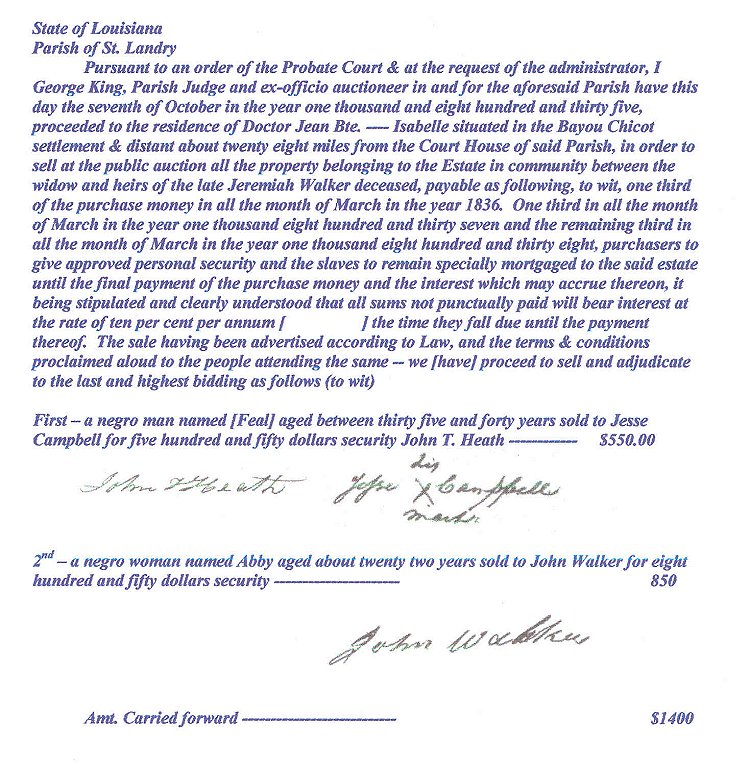 State of Louisiana
Parish of St. Landry
Pursuant to an order of the Probate Court & at the request of the administrator, I
George King, Parish Judge and ex-officio auctioneer in and for the aforesaid Parish have this
day the seventh of October in the year one thousand and eight hundred and thirty five,
proceeded to the residence of Doctor Jean Bte. ---- Isabelle situated in the Bayou Chicot
settlement & distant about twenty eight miles from the Court House of said Parish, in order to
sell at the public auction all the property belonging to the Estate in community between the
widow and heirs of the late Jeremiah Walker deceased, payable as following, to wit, one third
of the purchase money in all the month of March in the year 1836. One third in all the month
of March in the year one thousand eight hundred and thirty seven and the remaining third in
all the month of March in the year one thousand eight hundred and thirty eight, purchasers to
give approved personal security and the slaves to remain specially mortgaged to the said estate
until the final payment of the purchase money and the interest which may accrue thereon, it
being stipulated and clearly understood that all sums not punctually paid will bear interest at
the rate of ten per cent per annum [ ] the time they fall due until the payment
thereof. The sale having been advertised according to Law, and the terms & conditions
proclaimed aloud to the people attending the same -- we [have] proceed to sell and adjudicate
to the last and highest bidding as follows (to wit)
First – a negro man named [Feal] aged between thirty five and forty years sold to Jesse
Campbell for five hundred and fifty dollars security John T. Heath ------------ $550.00
his
John T Heath Jesse X Campbell
mark
2nd – a negro woman named Abby aged about twenty two years sold to John Walker for eight
hundred and fifty dollars security ---------------------- 850
John Walker
Amt. Carried forward --------------------------- $1400